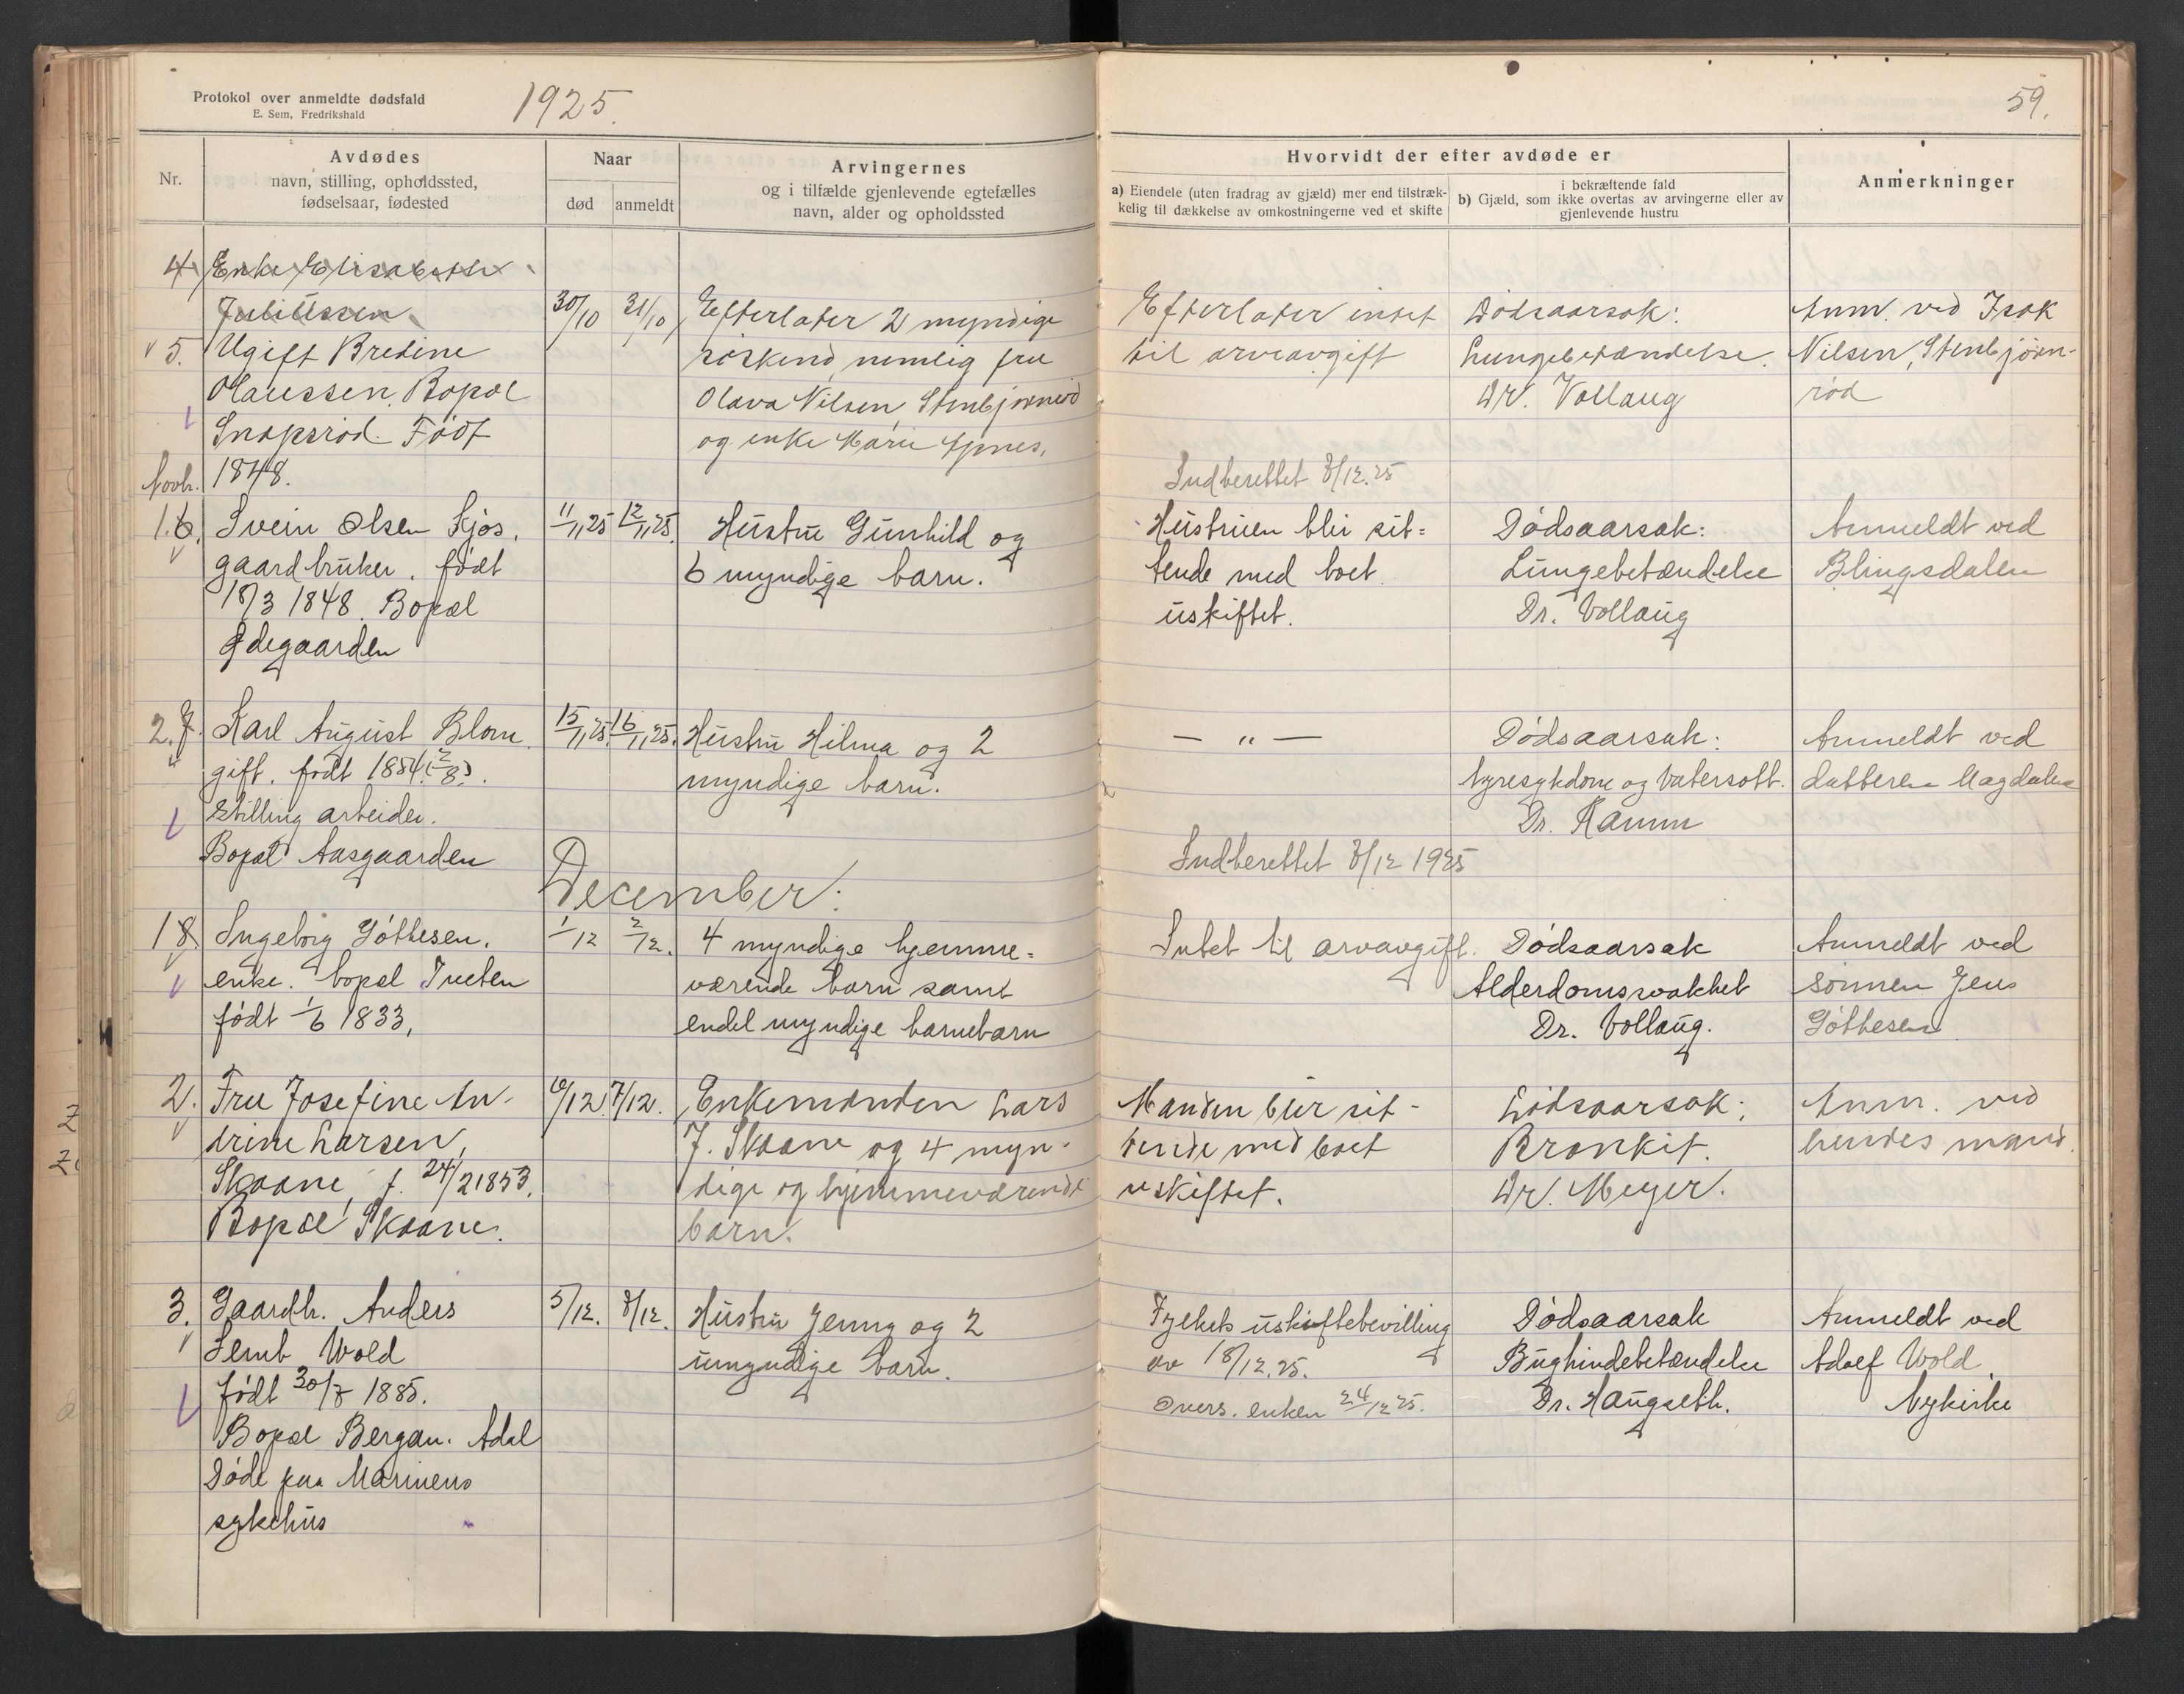 Protokol over anmeldte dødsfald
E. Sem, Fredrikshald
1925.
Nr.
Avdødes
navn, stilling, opholdssted,
fødselsaar, fødested
Naar
død
anmeldt
Arvingernes
og i tilfælde gjenlevende egtefælles
navn, alder og opholdssted
59.
Hvorvidt der efter avdøde er
a) Eiendele (uten fradrag av gjæld) mer end tilstræk-
kelig til dækkelse av omkostningerne ved et skifte
i bekræftende fald
b) Gjæld, som ikke overtas av arvingerne eller av
gjenlevende hustru
Anmerkninger
4. Enke Elisabeth
Juliussen
5. Ugift Bredine
Olaussen. Bopæl
Snopsrød. Født
1848.
30/10 31/10
Efterlater 2 myndige
søskend, nemlig fru
Olava Nilsen, Stenbjørnrød
og enke Marie
Efterlater intet
til arveavgift
Indberettet 8/12.25
Dødsaarsak:
Lungebetændelse.
Dr. Vollaug
Anm. ved Isak
Nilsen, Stenbjørn-
rød
Novb.
1.6. Svein Olsen Kjos.
gaardbruker. født
18/3 1848. Bopæl
Ødegaarden
11/11 25 12/11 25.
Hustru Gunhild og
6 myndige barn.
Hustruen blir sit=
tende med boet
uskiftet.
Dødsaarsak:
Lungebetændelse
Dr. Vollaug
Anmeldt ved
Blingsdalen
2.7. Karl August Blom.
gift. født 1854 (2/8).
Stilling arbeider.
Bopæl Aasgaarden
15/11 25. 16/11 25.
Hustru Hilma og 2
myndige barn.
— „ —
Indberettet 8/12 1925
Dødsaarsak:
Nyresykdom og Vatersott.
Dr. Hamm
Anmeldt ved
datteren Magdalena
December:
1 8. Ingeborg Gøthesen.
enke. bopæl Tveten
født 1/6 1833,
1/12 2/12.
4 myndige hjemme=
værende barn samt
endel myndige barnebarn
Intet til arvavgift.
Dødsaarsak
Alderdomssvakhet
Dr. Vollaug.
Anmeldt ved
sønnen Jens
Gøthesen
2. Fru Josefine An-
drine Larsen,
Skaane, f. 24/2 1853.
Bopæl Skaane.
6/12. 7/12.
Enkemanden Lars
J. Skaane og 4 myn-
dige og hjemmeværende
barn.
Manden blir sit-
tende med boet
uskiftet.
Dødsaarsak:
Bronkit.
Dr. Meyer.
Anm. ved
hendes mand.
3. Gaardbr. Anders
Semb Wold
født 30/8 1885.
Bopæl Bergan. Adal
Døde paa Marinens
sykehus
5/12. 8/12.
Hustru Jenny og 2
umyndige barn.
Fylkets uskiftebevilling
av 18/12.25.
Overs. enken 24/12 25.
Dødsaarsak
Bughindebetændelse
Dr. Haugseth.
Anmeldt ved
Adolf Wold
Nykirke